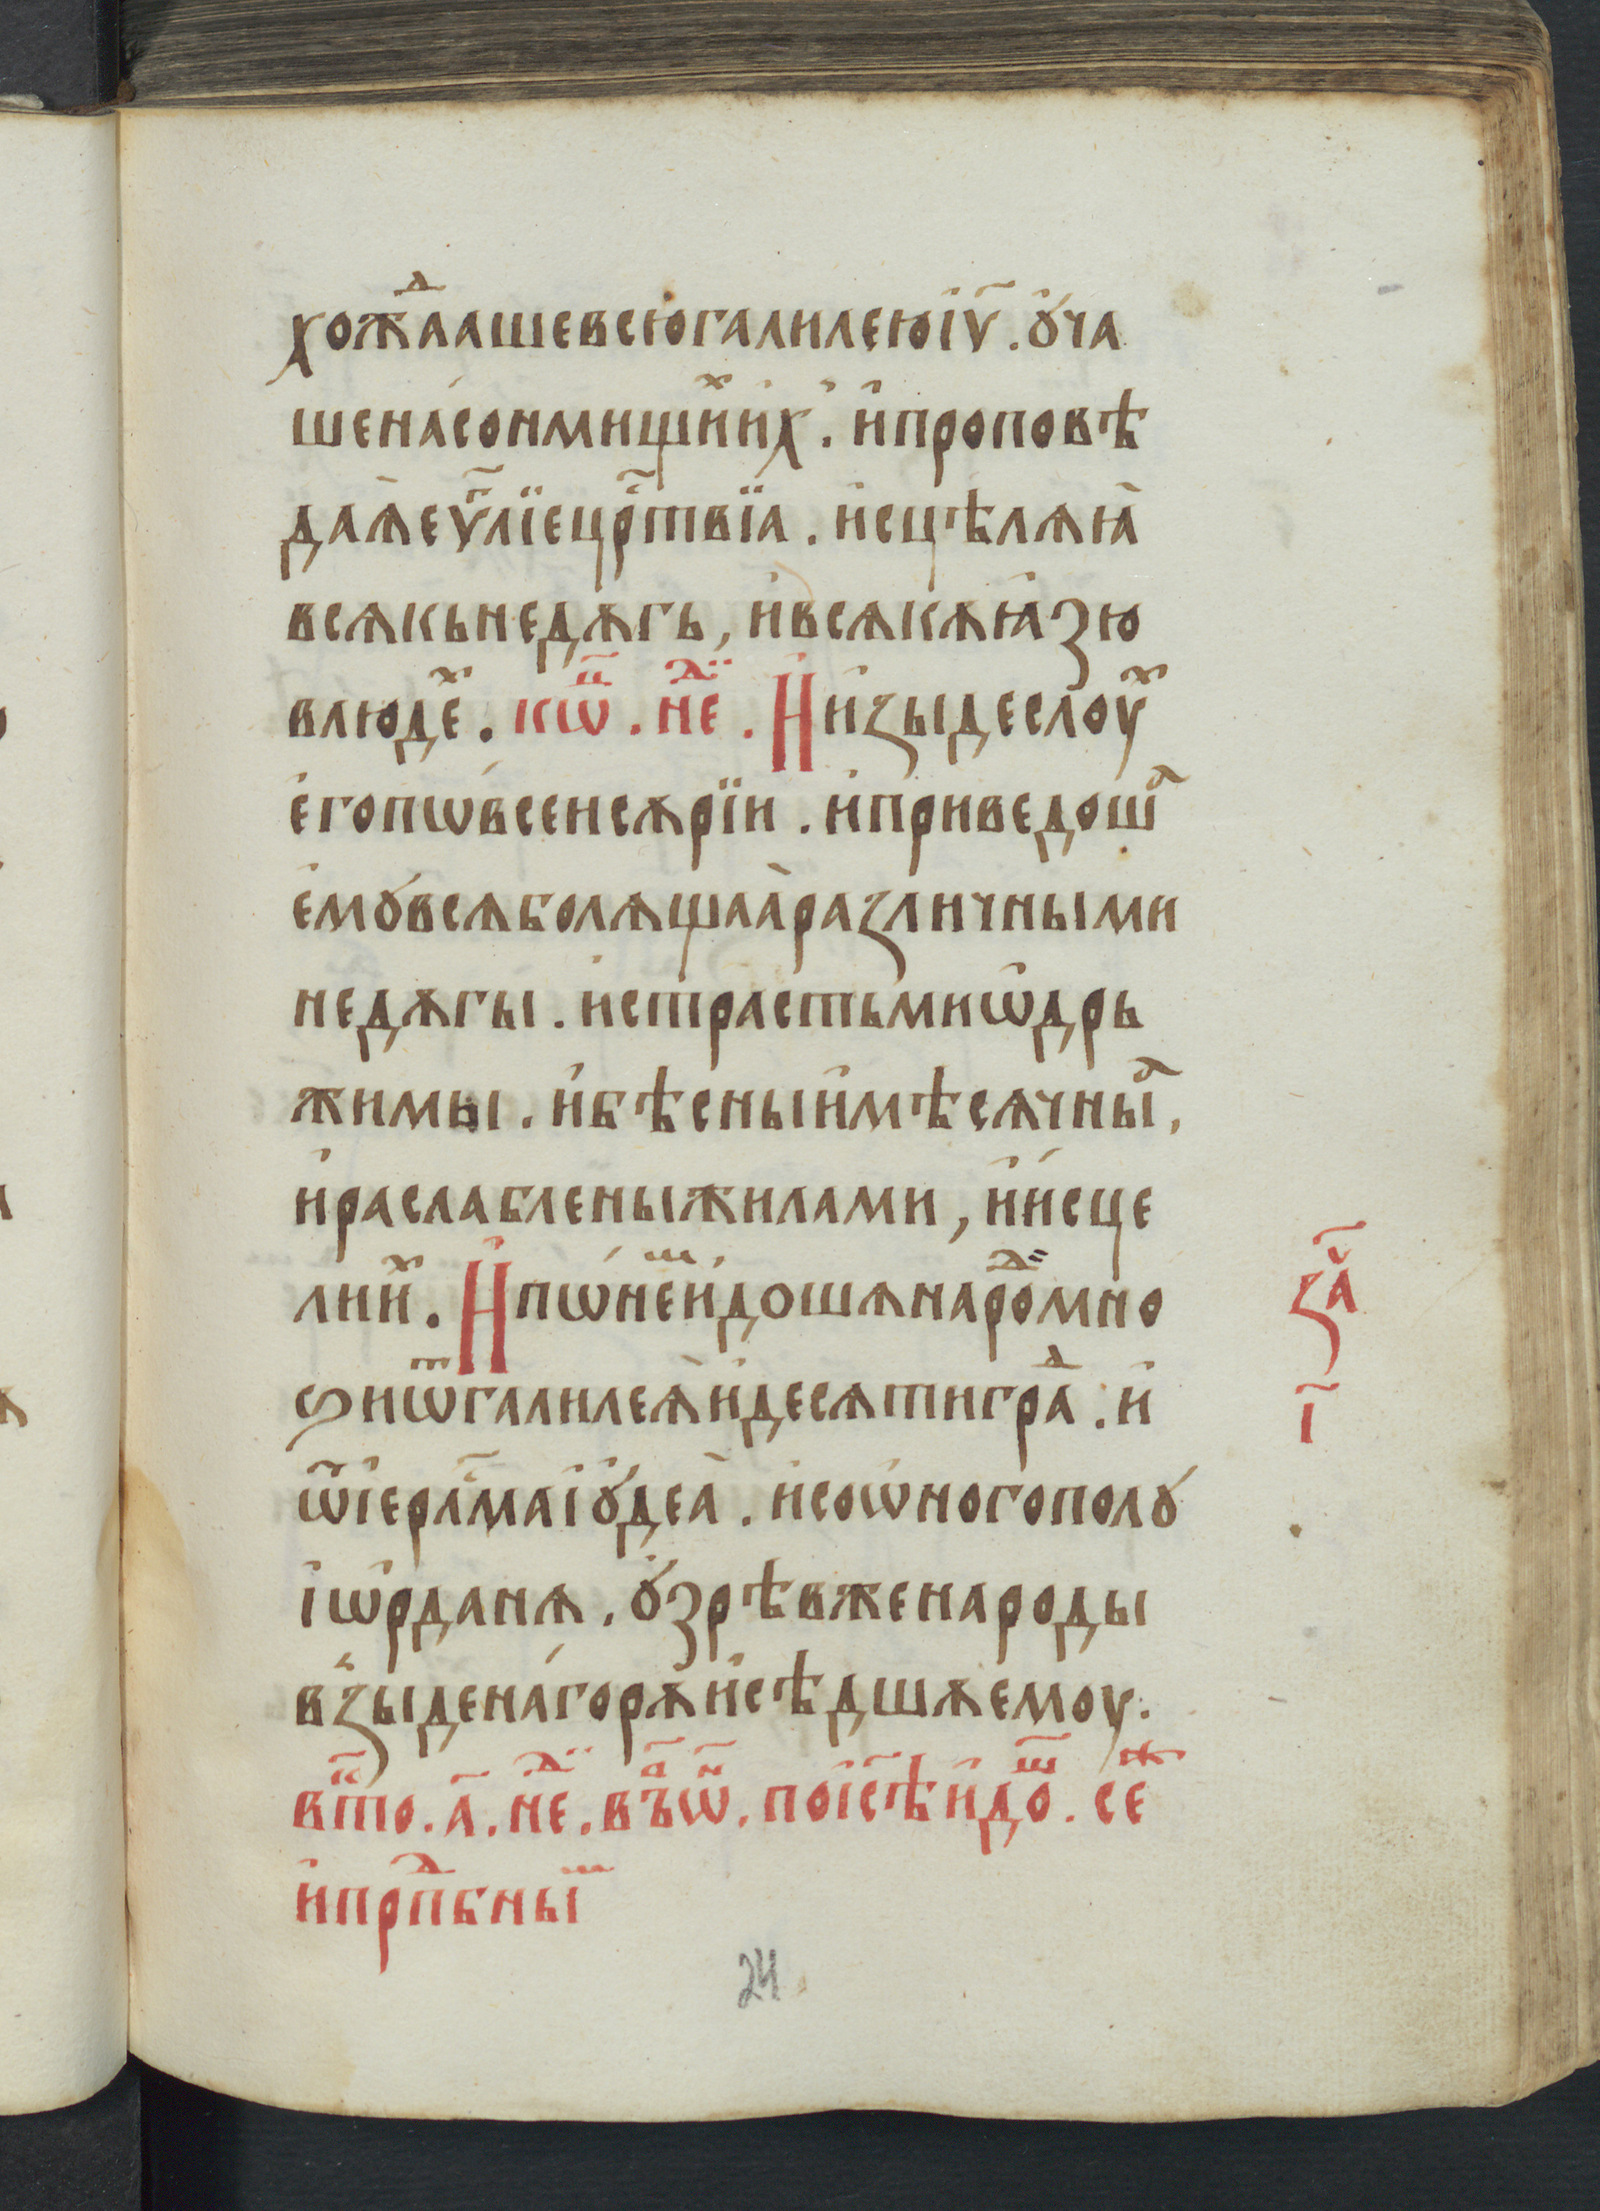 хожⷣаашевсюгалилеюі҆ѵ҃ . ꙋ҆ча
шена́сонмищиⷯи҆́х . и҆проповѣ
даѧ҆еѵⷢ҇лїецрⷭ҇твїа . и҆сцѣлѧꙗ҆
всѧкьнедѫгь , и҆всѧкѫꙗ҆зю
влюдеⷯ . кѡⷰ҇ . неⷣ . И и҆зыдеслоуⷯ
е҆гопѡвсе́исѫрїи . и҆приведошⷶ
е҆мꙋвсѧболѧщаа҆различными
недѫгы . и҆страстьмиѡ҆дрь
жимы . и҆бѣсныи҆мѣсѧчныⷶ ,
и҆раслабленыжилами , и҆и҆́сце
лииⷯ . И поⷩ҇ѡ҆́неⷨи҆дошѧнароⷣмно
ѕиѿгалилеѧ҆и҆десѧтиграⷣ . и҆
ѿі҆ерⷭ҇лмаі҆ꙋ҆деа҆ . и҆соѡ҆ногополꙋ
і҆ѡ҆рданѧ . ꙋ҆зрѣвженароды
взыдена́горѫи҆сѣдшѫемоу .
вⷮто . а҃ . неⷣ . въⷭѡⷩ . поі҆с҃ѣи҆доⷲ . сеⷤ
и҆прпⷣбныⷨ
заⷱ҇
і҃
24